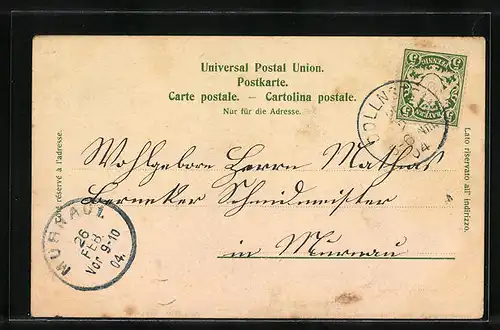 Universal Postal Union.
Postkarte.
Carte postale. — Cartolina postale.
Nur für die Adresse.
Côté réservé à l'adresse.
Lato riservato all' indirizzo.
BAYERN
PFENNIG
5 5
5 5
04
Wohlgebore Herrn Mathias
Berneker Schmidmeister
in Murnau
MURNAU 1.
26
FEB.
Vor 9-10
04.